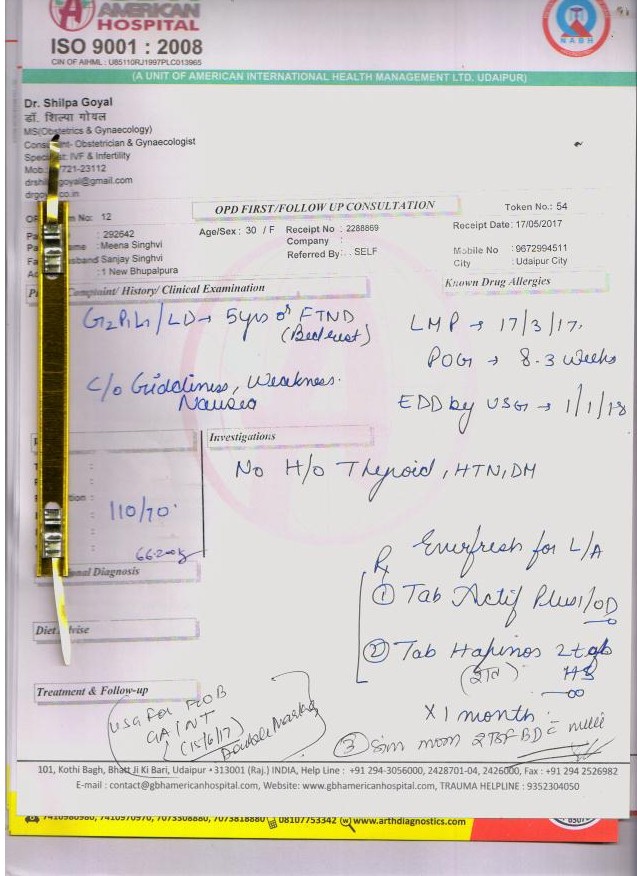 AMERICAN
HOSPITAL
ISO 9001 : 2008
CIN OF AIHML : U85110RJ1997PLC013965
NABH
(A UNIT OF AMERICAN INTERNATIONAL HEALTH MANAGEMENT LTD. UDAIPUR)
Dr. Shilpa Goyal
डॉ. शिल्पा गोयल
MS(Obstetrics & Gynaecology)
Obstetrician & Gynaecologist
IVF & Infertility
Mob. 721-23112
goyal@gmail.com
co.in
OPD FIRST/FOLLOW UP CONSULTATION
Token No.: 54
No: 12
Age/Sex : 30 / F
Receipt No : 2288869
Receipt Date: 17/05/2017
: 292642
Company :
: Meena Singhvi
Referred By: . SELF
Mobile No : 9672994511
Sanjay Singhvi
City : Udaipur City
: 1 New Bhupalpura
Complaint/ History/ Clinical Examination
Known Drug Allergies
G2P1L1/LD→ 5yrs FTND
(Bed rest)
LMP → 17/3/17
POG → 8.3 weeks
C/o Giddiness, Weakness.
Nausea
EDD by USG → 1/1/18
Investigations
No H/o Thyroid, HTN, DM
110/70
Rx Enerfresh for L/A
Diagnosis
① Tab Actif Plus 1/OD
Diet
② Tab Hapinos
HS
Treatment & Follow-up
USG For
NT
(15/6/17)
Double Marker
X 1 month
③
101, Kothi Bagh, Bhatt Ji Ki Bari, Udaipur - 313001 (Raj.) INDIA, Help Line : +91 294-3056000, 2428701-04, 2426000, Fax : +91 294 2526982
E-mail : contact@gbhamericanhospital.com, Website: www.gbhamericanhospital.com, TRAUMA HELPLINE : 9352304050
7410980980, 7410970970, 7073308880, 7073818880 08107753342 www.arthdiagnostics.com